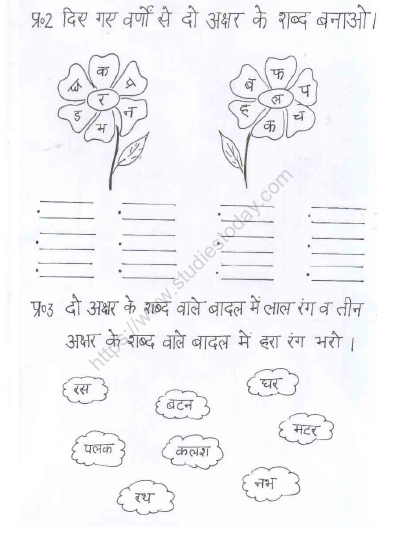 प्र॰2 दिए गए वर्णों से दो अक्षर के शब्द बनाओ।
क
प्र
र
ड
भ
न
ब
फ
प
ल
ह
क
च
https://www.studiestoday.com
प्र॰3 दो अक्षर के शब्द वाले बादल में लाल रंग व तीन
अक्षर के शब्द वाले बादल में हरा रंग भरो।
रस
बटन
घर
मटर
पलक
कलश
रथ
नभ